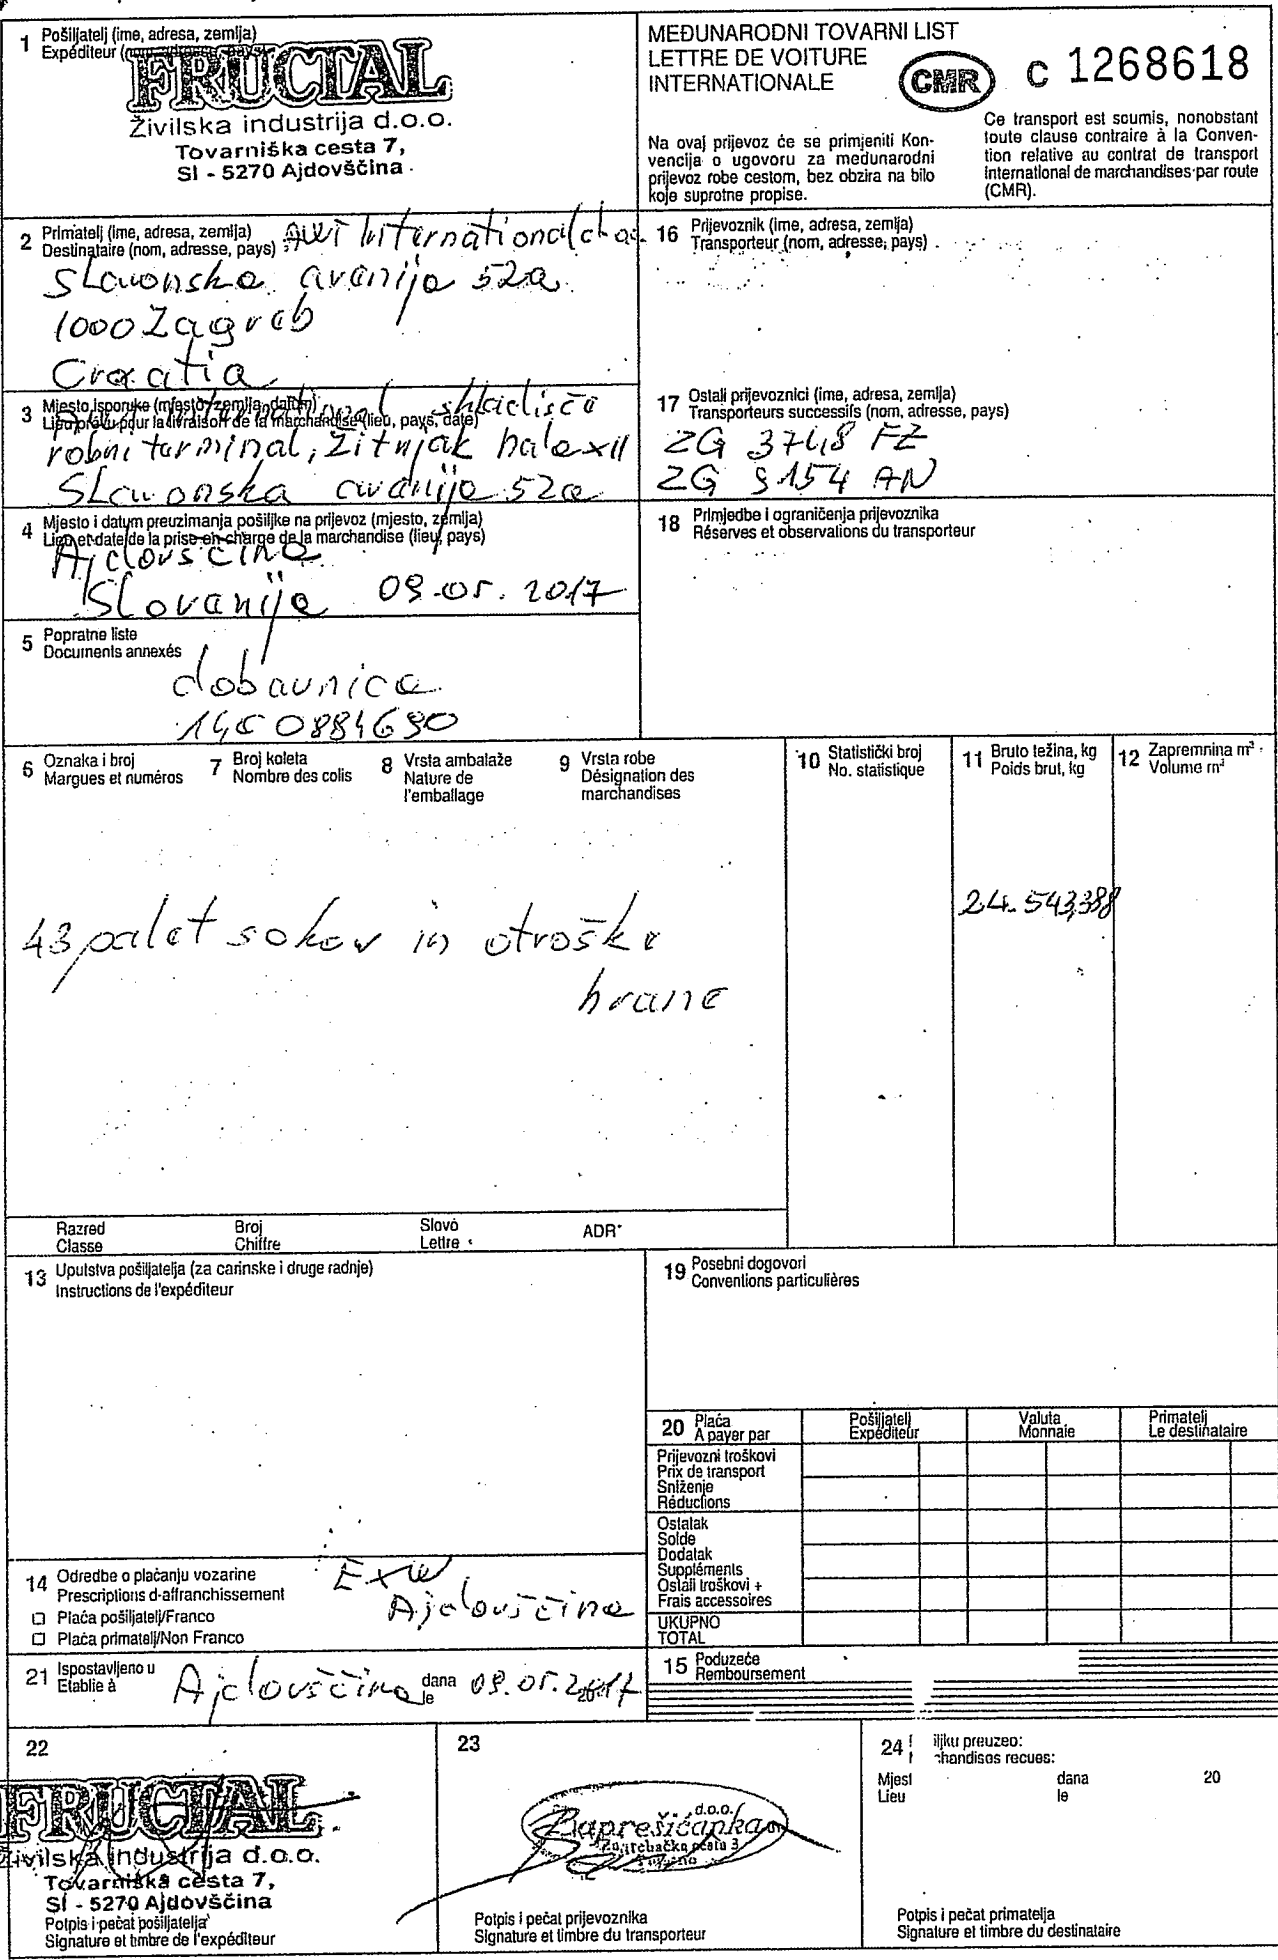 1 Pošiljatelj (ime, adresa, zemlja)
Expéditeur (nom, adresse, pays)
FRUCTAL
Živilska industrija d.o.o.
Tovarniška cesta 7,
SI - 5270 Ajdovščina
MEĐUNARODNI TOVARNI LIST
LETTRE DE VOITURE
INTERNATIONALE
CMR
C 1268618
Na ovaj prijevoz će se primjeniti Kon-
vencija o ugovoru za međunarodni
prijevoz robe cestom, bez obzira na bilo
koje suprotne propise.
Ce transport est soumis, nonobstant
toute clause contraire à la Conven-
tion relative au contrat de transport
international de marchandises par route
(CMR).
2 Primatelj (ime, adresa, zemlja)
Destinataire (nom, adresse, pays)
AWT International d.o.o.
Slavonska avenija 52a
1000 Zagreb
Croatia
16 Prijevoznik (ime, adresa, zemlja)
Transporteur (nom, adresse, pays)
3 Mjesto isporuke (mjesto, zemlja, datum)
Lieu prévu pour la livraison de la marchandise (lieu, pays, date)
international skladišče
robni terminal, Žitnjak hala XII
Slavonska avenija 52a
17 Ostali prijevoznici (ime, adresa, zemlja)
Transporteurs successifs (nom, adresse, pays)
ZG 3748 FZ
ZG 9154 AN
4 Mjesto i datum preuzimanja pošiljke na prijevoz (mjesto, zemlja)
Lieu et date de la prise en charge de la marchandise (lieu, pays)
Ajdovščina
Slovenija 09.05.2017
18 Primjedbe i ograničenja prijevoznika
Réserves et observations du transporteur
5 Popratne liste
Documents annexés
dobavnica
14C0884690
6 Oznaka i broj
Margues et numéros
7 Broj koleta
Nombre des colis
8 Vrsta ambalaže
Nature de
l'emballage
9 Vrsta robe
Désignation des
marchandises
10 Statistički broj
No. statistique
11 Bruto težina, kg
Poids brut, kg
12 Zapremnina m³
Volume m³
24.543,388
43 palet sokov in otroške
hrane
Razred
Classe
Broj
Chiffre
Slovo
Lettre
ADR*
13 Uputstva pošiljatelja (za carinske i druge radnje)
Instructions de l'expéditeur
19 Posebni dogovori
Conventions particulières
20 Plaća
A payer par
Pošiljatelj
Expéditeur
Valuta
Monnaie
Primatelj
Le destinataire
Prijevozni troškovi
Prix de transport
Sniženje
Réductions
Ostatak
Solde
Dodatak
Suppléments
Ostali troškovi +
Frais accessoires
UKUPNO
TOTAL
14 Odredbe o plaćanju vozarine
Prescriptions d-affranchissement
Plaća pošiljatelj/Franco
Plaća primatelj/Non Franco
EXW
Ajdovščina
21 Ispostavljeno u
Etablie à
Ajdovščina
dana
le
09.05.2017
15 Poduzeće
Remboursement
22
FRUCTAL
Živilska industrija d.o.o.
Tovarniška cesta 7,
SI - 5270 Ajdovščina
Potpis i pečat pošiljatelja
Signature et timbre de l'expéditeur
23
d.o.o.
Zaprešićanka
Zagrebačka cesta 3
Potpis i pečat prijevoznika
Signature et timbre du transporteur
24
iljku preuzeo:
chandises recues:
Mjest
Lieu
dana
le
20
Potpis i pečat primatelja
Signature et timbre du destinataire